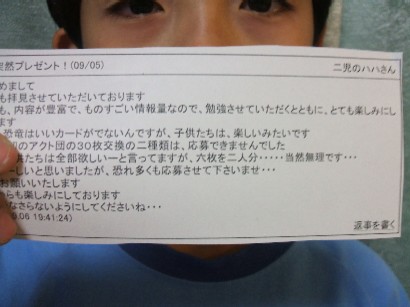 突然プレゼント！(09/05) 二児のハハさん
めまして
も拝見させていただいております
も、内容が豊富で、ものすごい情報量なので、勉強させていただくとともに、とても楽しみにし
ます
恐竜はいいカードがでないんですが、子供たちは、楽しいみたいです
のアクト団の３０枚交換の二種類は、応募できませんでした
供たちは全部欲しいーと言ってますが、六枚を二人分・・・・・当然無理です・・・
しいと思いましたが、恐れ多くも応募させて下さいませ・・・
お願いいたします
からも楽しみにしております
なさらないようにしてくださいね・・・
.06 19:41:24)
返事を書く